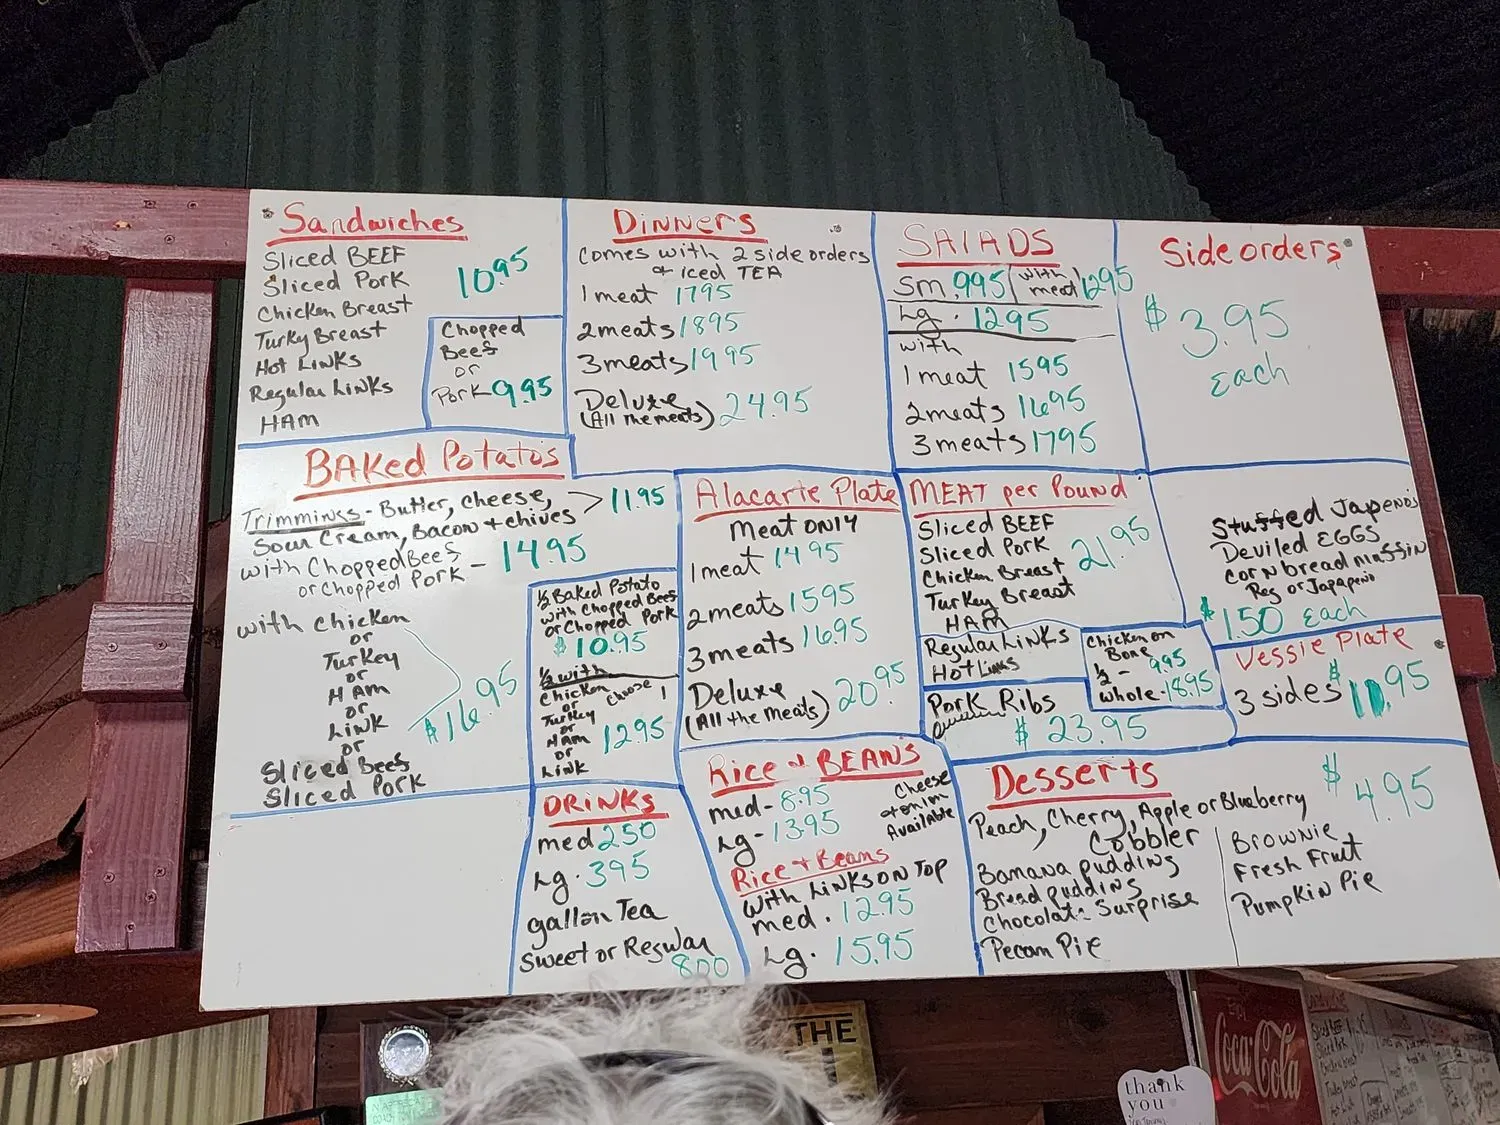 Sandwiches
Sliced BEEF
Sliced Pork
Chicken Breast
Turky Breast
Hot Links
Regular Links
HAM
10.95
Chopped
Beef
or
Pork 9.95
Dinners
comes with 2 side orders
& iced TEA
1 meat 1795
2 meats 1895
3 meats 1995
Deluxe
(All The meats) 24.95
SALADS
Sm. 995 with meat 1295
Lg. 1295
with
1 meat 1595
2 meats 1695
3 meats 1795
Side orders
$3.95
Each
BAKed Potatos
Trimmings - Butter, cheese,
Sour Cream, Bacon + chives
11.95
with Chopped Beef
or Chopped Pork - 14.95
with chicken
or
Turkey
or
HAM
or
Link
or
Sliced Beef
Sliced Pork
$16.95
1/2 Baked Potato
with Chopped Beef
or Chopped Pork
$10.95
1/2 with
Chicken
or
Turkey
or
HAM
or
Link
choose 1
12.95
Alacarte Plate
Meat ONly
1 meat 1495
2 meats 1595
3 meats 16.95
Deluxe
(All the meats) 20.95
MEAT per Pound
Sliced BEEF
Sliced Pork
Chicken Breast
Turkey Breast
HAM
21.95
Regular Links
Hot Links
Chicken on
Bone
1/2 - 995
whole - 18.95
Pork Ribs
$23.95
Stuffed Japenos
Deviled EGGS
corn bread muffin
Reg or Japapeno
$1.50 Each
Vessie Plate
3 sides $11.95
DRINKS
med 250
Lg. 395
gallon Tea
Sweet or Regular
800
Rice & BEANS
med - 8.95
Lg - 13.95
Cheese
& onion
Available
Rice & Beans
with Links ON Top
med. 12.95
Lg. 15.95
Desserts
$4.95
Peach, Cherry, Apple or Blueberry
Cobbler
Banana pudding
Bread pudding
Chocolate Surprise
Pecan Pie
Brownie
Fresh Fruit
Pumpkin Pie
THE
Coca-Cola
thank
you